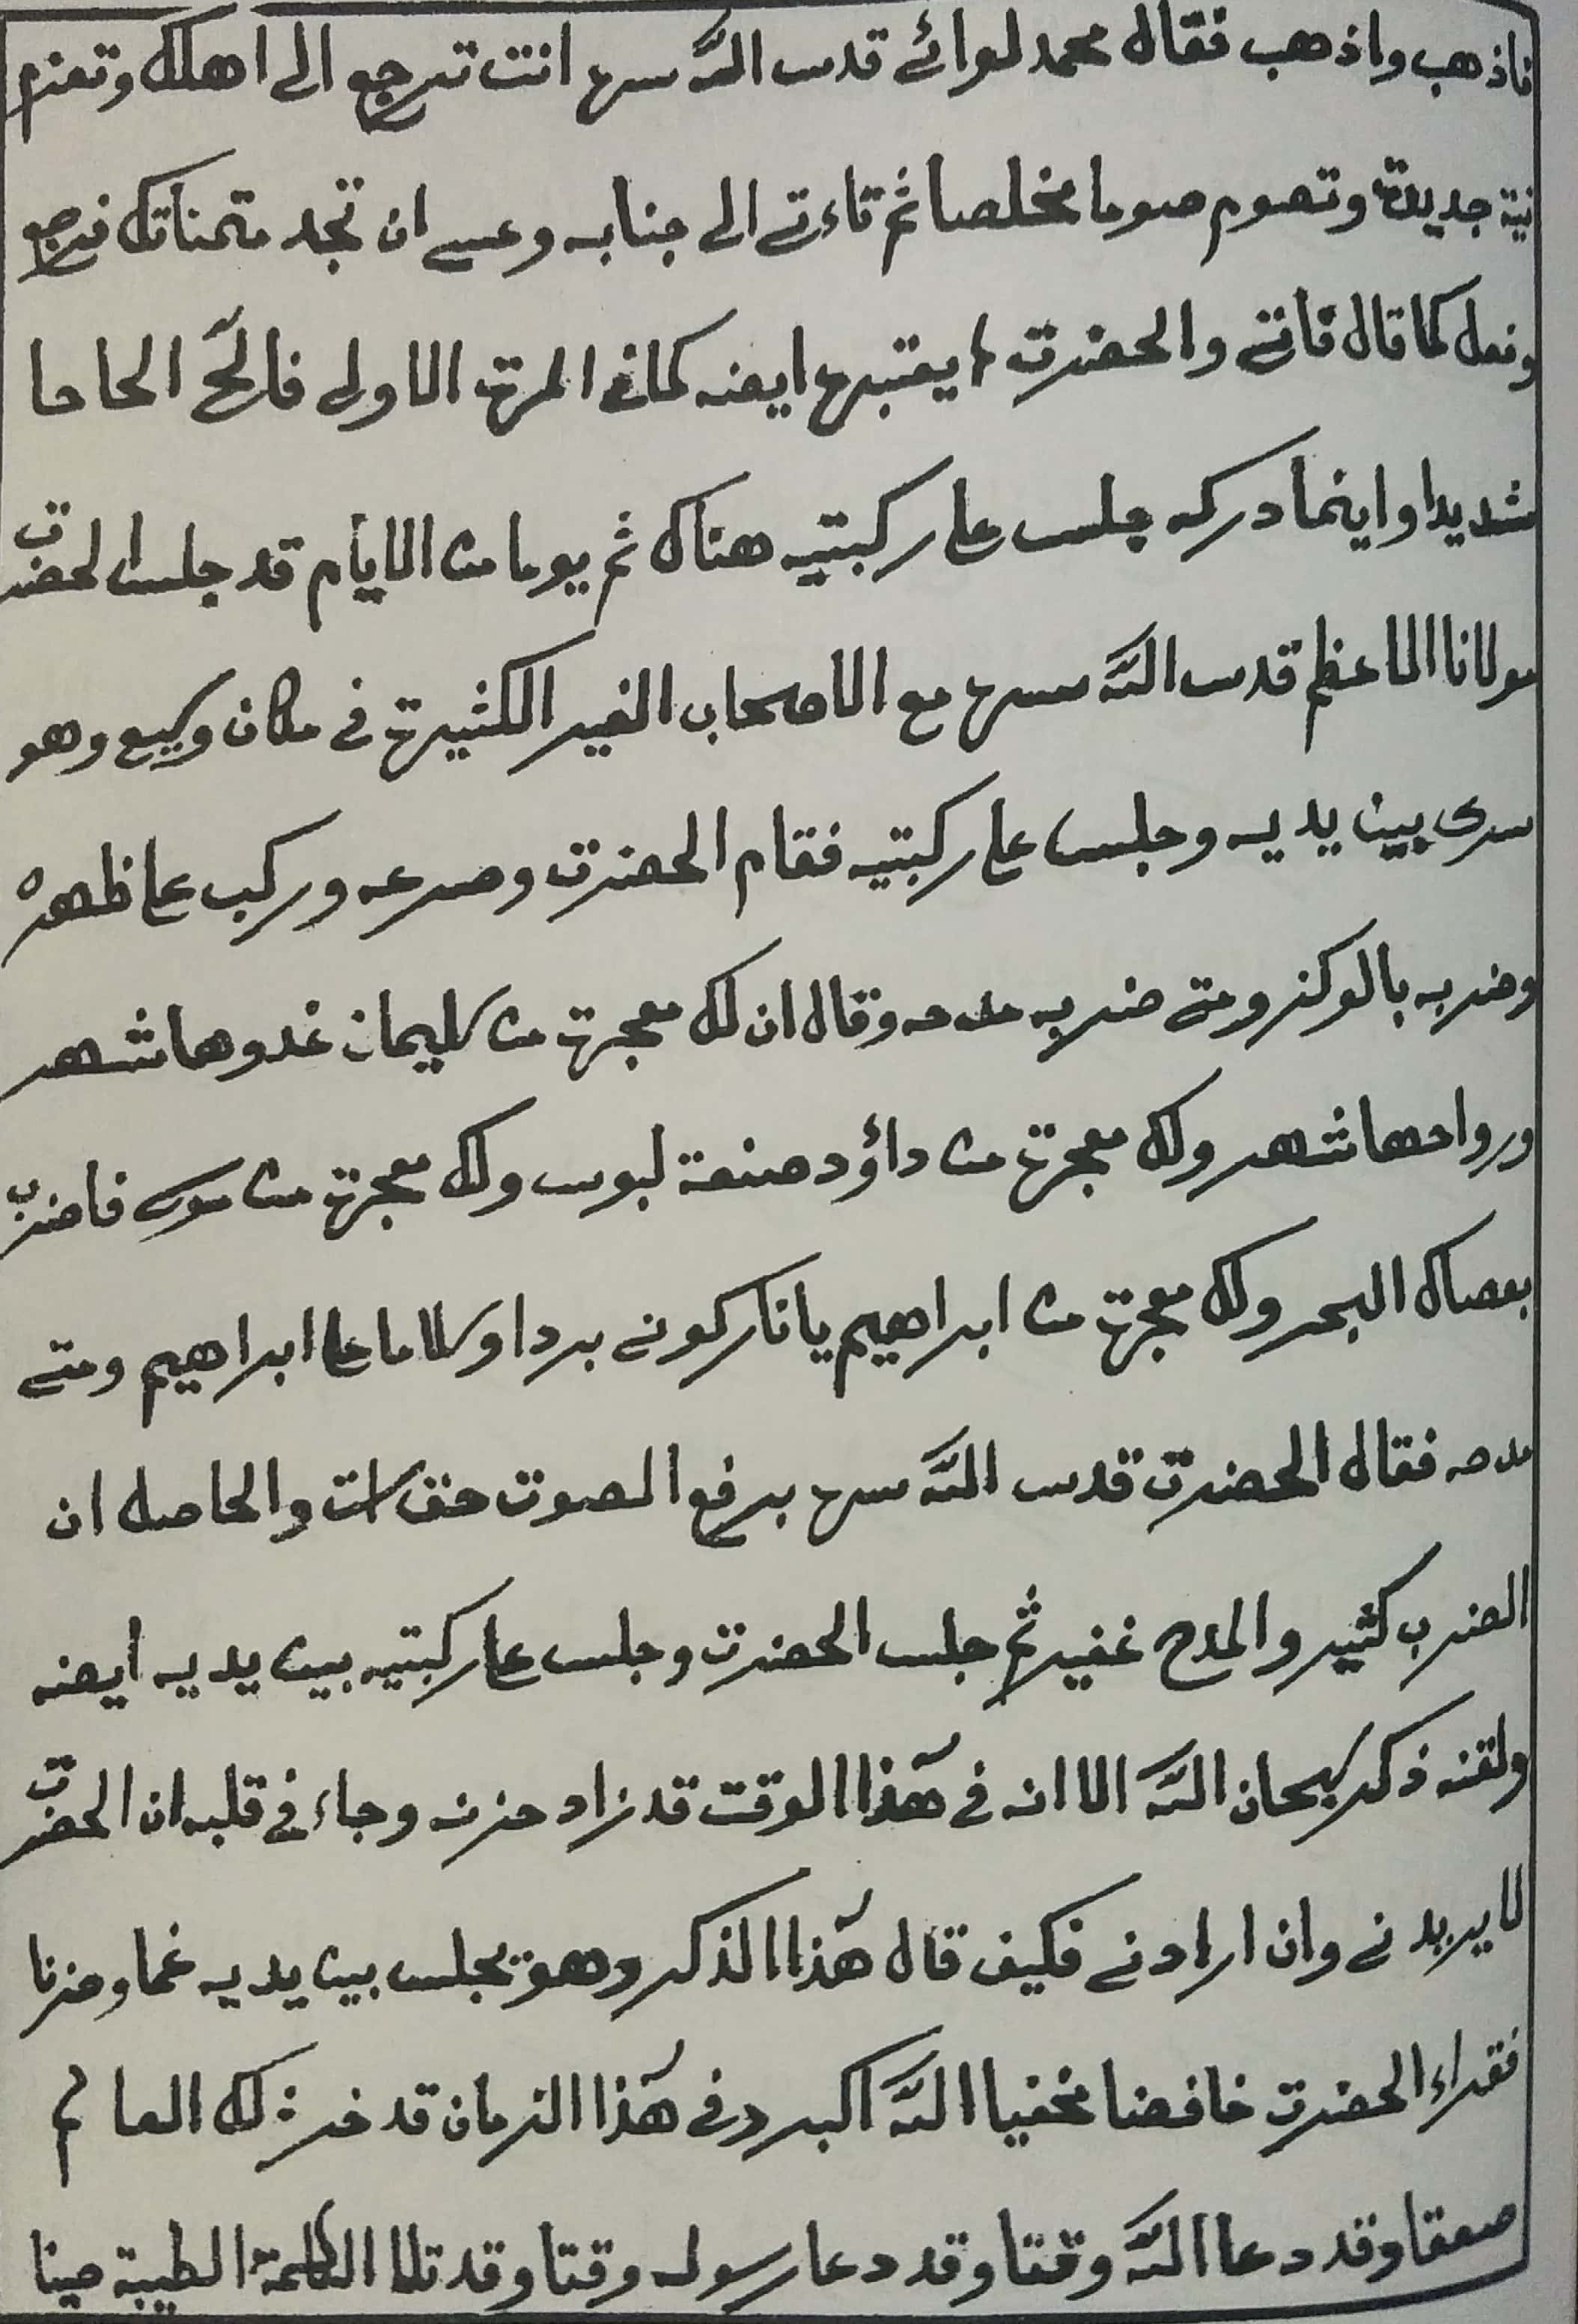 فاذهب واذهب فقال محمد لوائے قدس اللّٰه سره انت ترجع الى اهلك وتعزم
نية جديدة وتصوم صوما مخلصا ثم تاءتے الى جنابه وعسے ان تجد متمناتك فرجع
وفعل كما قال فاتے والحضرت لم يعتبره ايضه كمافے المرة الاولى فالحّ الحاحا
شديدا واينما دركه جلس علے ركبتيه هناك ثم يوما من الايام قد جلس الحضرت
مولانا الاعظم قدس اللّٰه سره مع الاصحاب الغير الكثيرة فے مكان وسيع وهو
سرى بين يديه وجلس علے ركبتيه فقام الحضرت وصرعه وركب علے ظهره
وضربه بالوكز ومتے ضربه مدحه وقال ان لك معجرة من سليمان غدوها شهر
ورواحها شهر ولك معجرة من داؤد صنعة لبوس ولك معجرة من موسے فاضرب
بعصاك البحر ولك معجرة من ابراهيم يا نار كونے بردا وسلاما علے ابراهيم ومتے
مدحه فقال الحضرت قدس اللّٰه سره برفع الصوت حق است والحاصل ان
الضرب كثير والمدح غفير ثم جلس الحضرت وجلس علے ركبتيه بين يديه ايضه
ولقنه ذكر سبحان اللّٰه الا انه فے هٰذا الوقت قد زاد حزنه وجاء فے قلبه ان الحضرت
لا يريدنے وان ارادنے فكيف قال هٰذا الذكر وهو يجلس بين يديه غما وحزنا
فقراء الحضرت خافضا مخفيا اللّٰه اكبر وفے هٰذا الزمان قد خر ذلك العالم
صعقا وقد دعا اللّٰه وقتا وقد دعا رسوله وقتا وقد تلا الكلمة الطيبة حينا